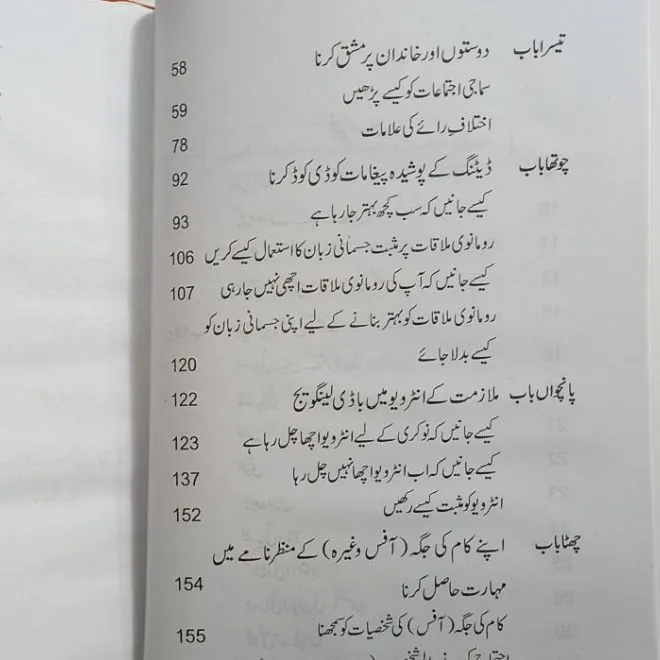 تیسرا باب دوستوں اور خاندان پر مشق کرنا 58
سماجی اجتماعات کو کیسے پڑھیں 59
اختلافِ رائے کی علامات 78
چوتھا باب ڈیٹنگ کے پوشیدہ پیغامات کو ڈی کوڈ کرنا 92
کیسے جانیں کہ سب کچھ بہتر جا رہا ہے 93
رومانوی ملاقات پر مثبت جسمانی زبان کا استعمال کیسے کریں 106
کیسے جانیں کہ آپ کی رومانوی ملاقات اچھی نہیں جا رہی 107
رومانوی ملاقات کو بہتر بنانے کے لیے اپنی جسمانی زبان کو
کیسے بدلا جائے 120
پانچواں باب ملازمت کے انٹرویو میں باڈی لینگویج 122
کیسے جانیں کہ نوکری کے لیے انٹرویو اچھا چل رہا ہے 123
کیسے جانیں کہ اب انٹرویو اچھا نہیں چل رہا 137
انٹرویو کو مثبت کیسے رکھیں 152
چھٹا باب اپنے کام کی جگہ (آفس وغیرہ) کے منظرنامے میں
مہارت حاصل کرنا 154
کام کی جگہ (آفس) کی شخصیات کو سمجھنا 155